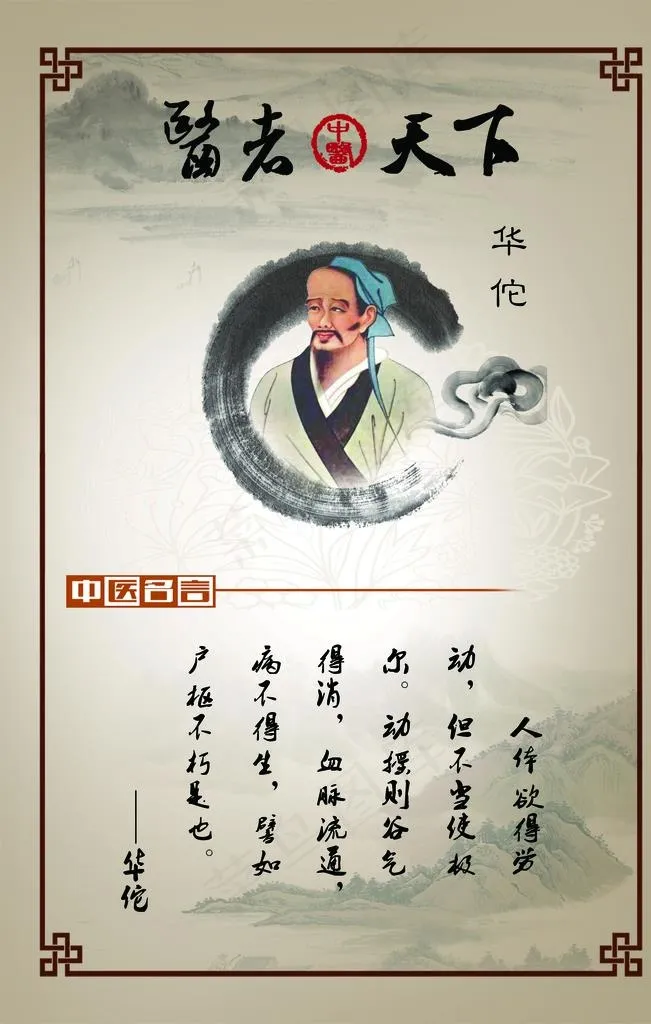 醫者中醫天下
华佗
中医名言
人体欲得劳
动，但不当使极
尔。动摇则谷气
得消，血脉流通，
病不得生，譬如
户枢不朽是也。
——华佗